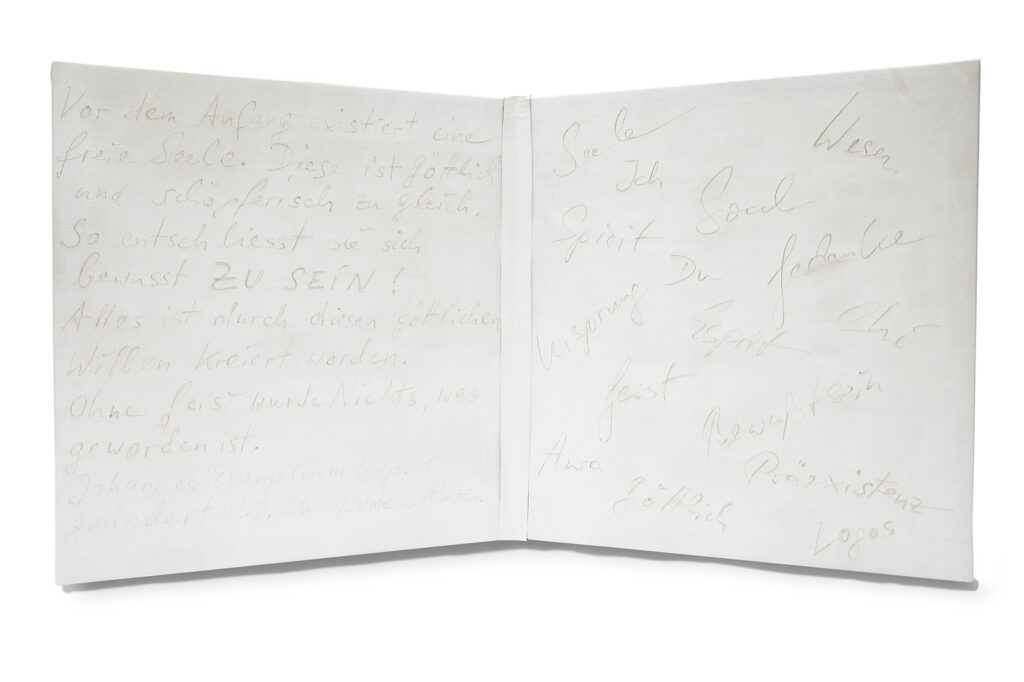 Vor dem Anfang existiert eine
freie Seele. Diese ist göttlich
und schöpferisch zu gleich.
So entschliesst sie sich
bewusst ZU SEIN!
Alles ist durch diesen göttlichen
Willen kreiert worden.
Ohne Geist wurde Nichts, was
geworden ist.
Johannes Evangelium
geändert
Seele
Wesen
Ich
Soul
Spirit
Gedanke
Du
Ursprung
Esprit
Chi
Geist
Bewußtsein
Aura
Präexistenz
Göttlich
Logos